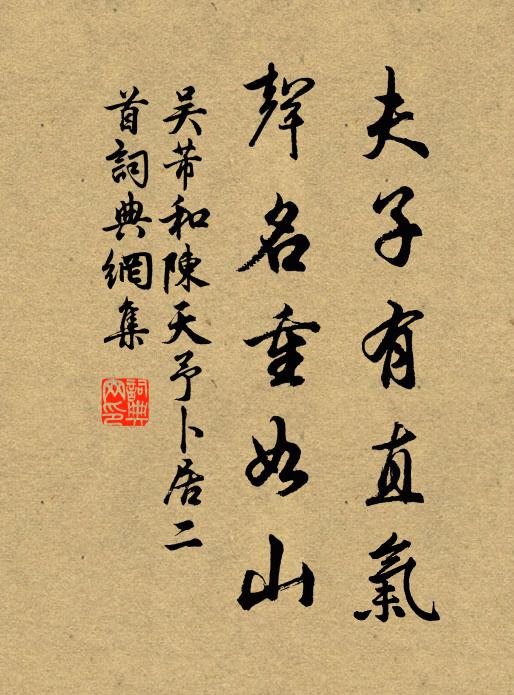 夫子有直氣
聲名重如山
吳芾和陳天予卜居二
首詞典網集
詞典網印